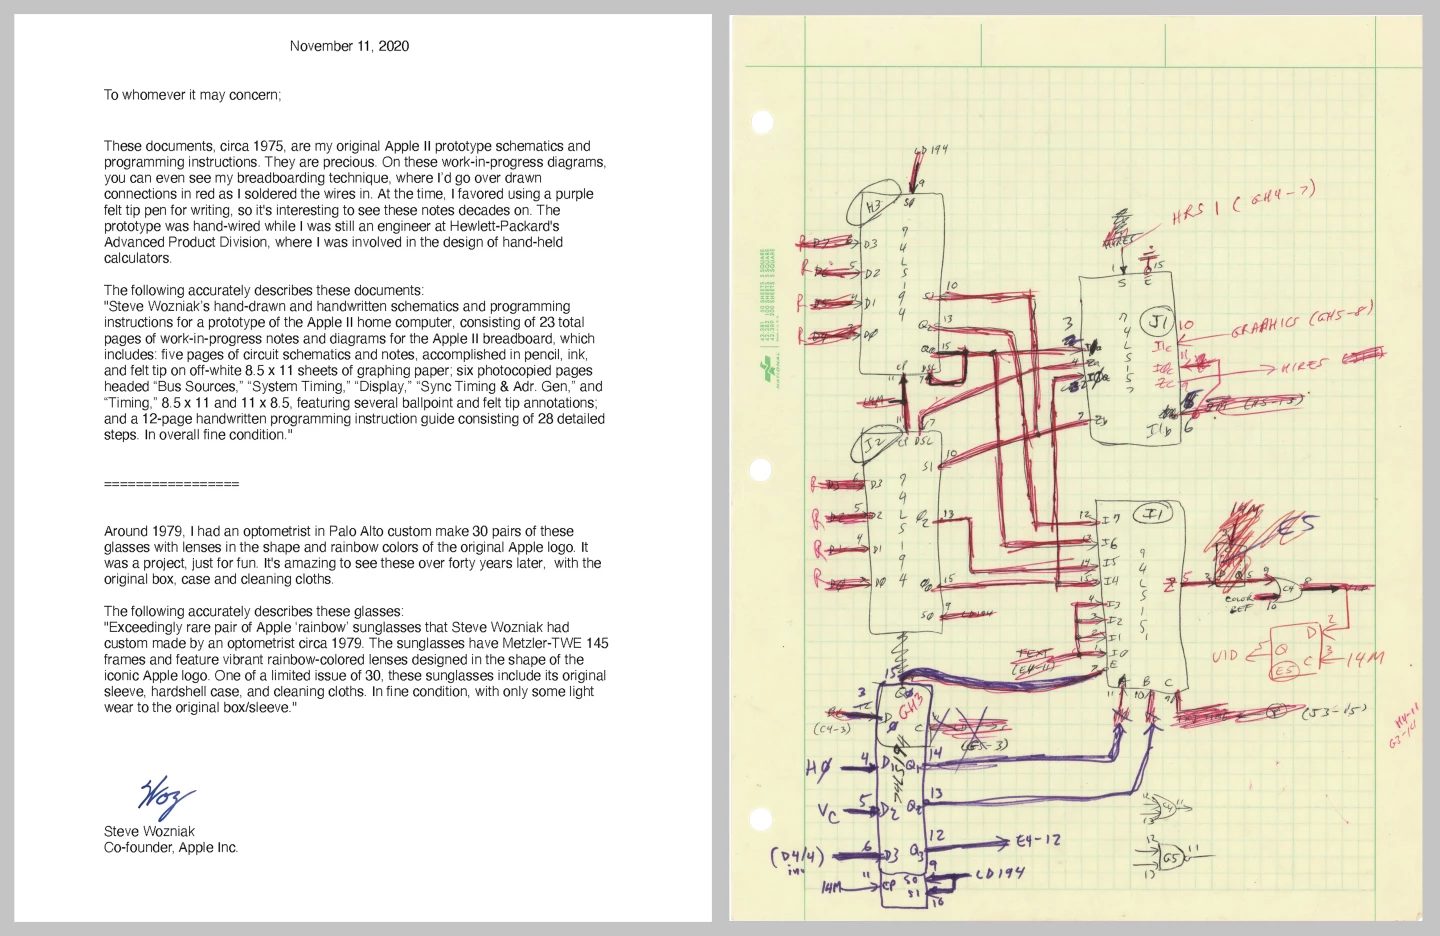 November 11, 2020
To whomever it may concern;
These documents, circa 1975, are my original Apple II prototype schematics and
programming instructions. They are precious. On these work-in-progress diagrams,
you can even see my breadboarding technique, where I'd go over drawn
connections in red as I soldered the wires in. At the time, I favored using a purple
felt tip pen for writing, so it's interesting to see these notes decades on. The
prototype was hand-wired while I was still an engineer at Hewlett-Packard's
Advanced Product Division, where I was involved in the design of hand-held
calculators.
The following accurately describes these documents:
"Steve Wozniak's hand-drawn and handwritten schematics and programming
instructions for a prototype of the Apple II home computer, consisting of 23 total
pages of work-in-progress notes and diagrams for the Apple II breadboard, which
includes: five pages of circuit schematics and notes, accomplished in pencil, ink,
and felt tip on off-white 8.5 x 11 sheets of graphing paper; six photocopied pages
headed "Bus Sources," "System Timing," "Display," "Sync Timing & Adr. Gen," and
"Timing," 8.5 x 11 and 11 x 8.5, featuring several ballpoint and felt tip annotations;
and a 12-page handwritten programming instruction guide consisting of 28 detailed
steps. In overall fine condition."
=================
Around 1979, I had an optometrist in Palo Alto custom make 30 pairs of these
glasses with lenses in the shape and rainbow colors of the original Apple logo. It
was a project, just for fun. It's amazing to see these over forty years later,  with the
original box, case and cleaning cloths.
The following accurately describes these glasses:
"Exceedingly rare pair of Apple 'rainbow' sunglasses that Steve Wozniak had
custom made by an optometrist circa 1979. The sunglasses have Metzler-TWE 145
frames and feature vibrant rainbow-colored lenses designed in the shape of the
iconic Apple logo. One of a limited issue of 30, these sunglasses include its original
sleeve, hardshell case, and cleaning cloths. In fine condition, with only some light
wear to the original box/sleeve."
Woz
Steve Wozniak
Co-founder, Apple Inc.
LD194
9
S0
H3
74LS194
R
D3
R
5 D2
R
4 D1
R
D0
S1 10
Q2 13
Q0 15
CP
11
14M
HRS 1 (GH4-7)
HIRES
1 15
S E
J1
74LS157
10 GRAPHICS (GH5-8)
I1c
11
Zc 9 HIRES
I1b 6
3
4
7 Zb
J2
11 7
CP DSL
74LS194
S1 10
R 6 D3
R 5 D2
R 4 D1
R D0
Q2 13
Q0 15
S0 9 LD194
I1
74LS151
12 I7
I6
14 I5
15 I4
4 I3
I2
2 I1
1 I0
E
TEXT
Z 5
A B C
11 10 9
14M
E5
COLOR
REF
9
10
C4 8
D 2
Q
C 3
E5
VID 5
14M
(J3-15)
H4-11
G3-14
15
Q0
GH3
74LS194
3 D0
(C4-3)
C
(G5-3)
H0 4 D1 Q1 14
Vc 5 D2 Q2 13
(D4/4) 6 D3 Q3 12 E4-12
inv
14M 11 CP S0 9 LD194
S1 10
12
13 C4 11
12
13 G5 11
NATIONAL